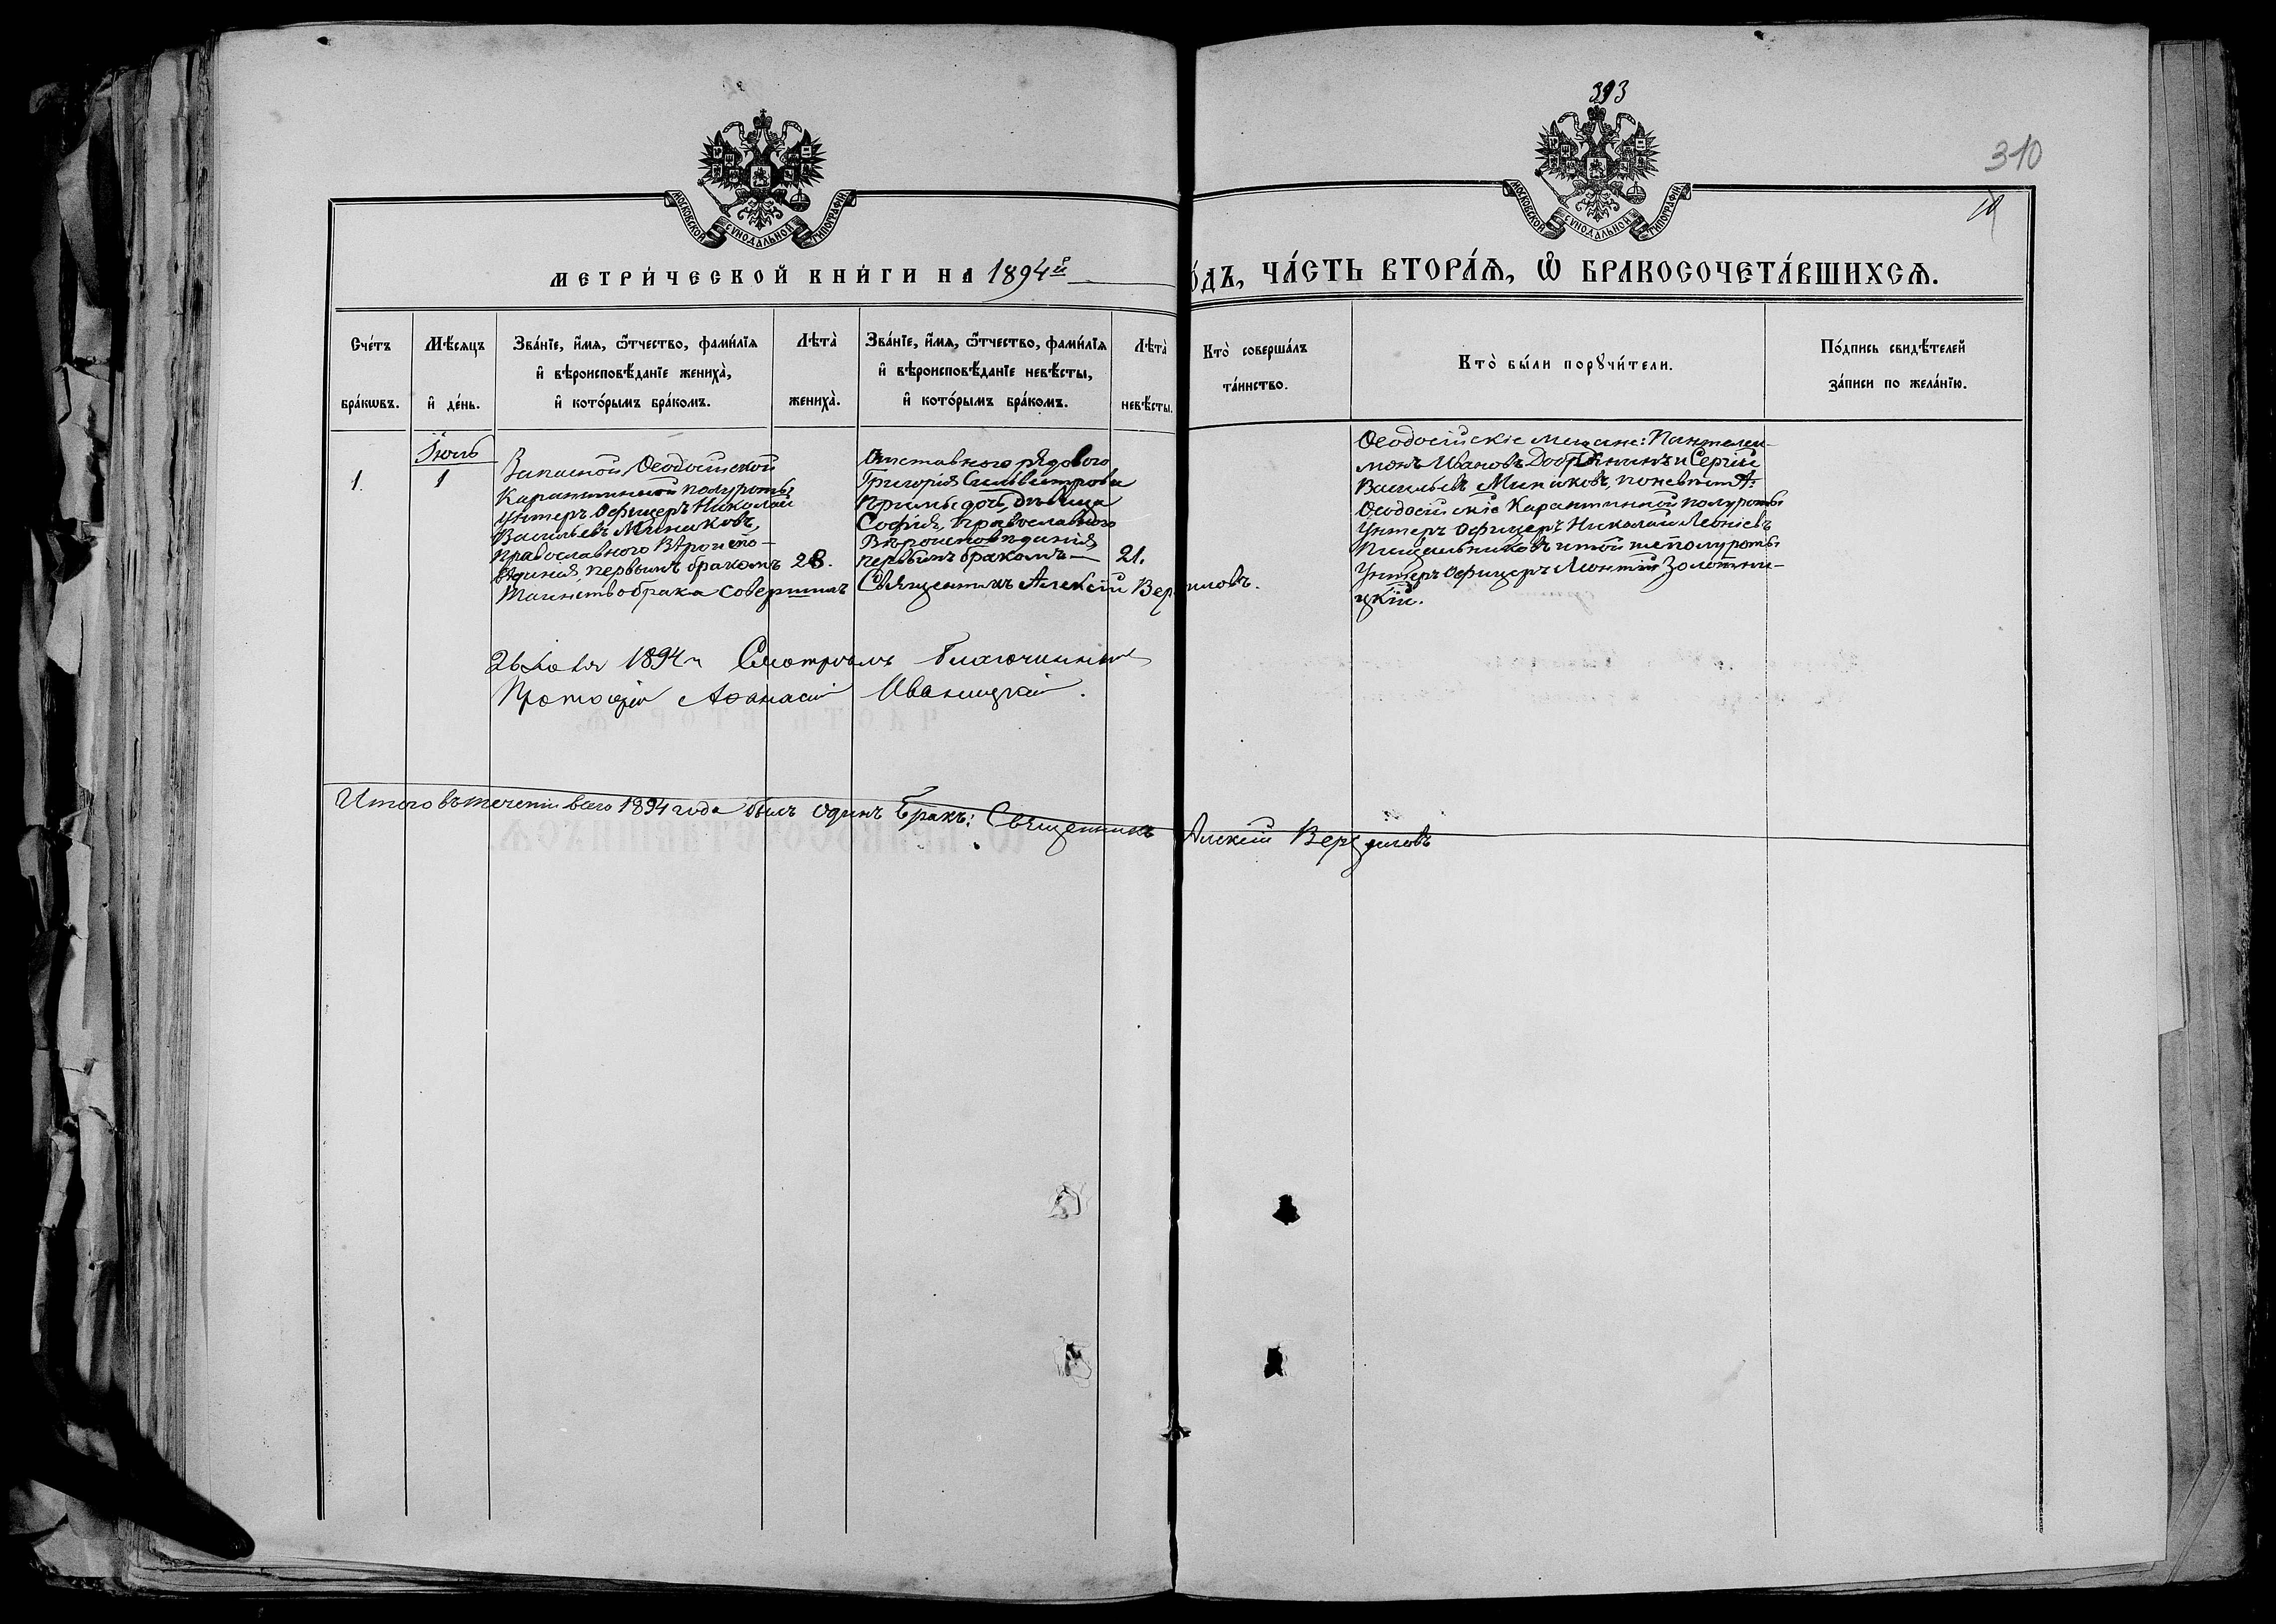 393
310
МОСКОВСКОЙ СѴНОДАЛЬНОЙ ТИПОГРАФІИ
МОСКОВСКОЙ СѴНОДАЛЬНОЙ ТИПОГРАФІИ
МЕТРИ́ЧЕСКОЙ КНИ́ГИ НА 1894й
О́ДЪ, ЧА́СТЬ ВТОРА́Ѧ, Ѡ҆ БРАКОСОЧЕТА́ВШИХСѦ.
Сче́тъ бра́кѡвъ.
Мѣ́сяцъ и҆ де́нь.
Зва́нїе, и҆́мѧ, ѻ҆́тчество, фами́лїѧ
и҆ вѣроисповѣ́данїе жениха̀,
и҆ кото́рымъ бра́комъ.
Лѣта̀ жениха̀.
Зва́нїе, и҆́мѧ, ѻ҆́тчество, фами́лїѧ
и҆ вѣроисповѣ́данїе невѣ́сты,
и҆ кото́рымъ бра́комъ.
Лѣта̀ невѣ́сты.
Кто̀ соверша́лъ
та́инство.
Кто̀ бы́ли порꙋчи́тели.
По́дпись свидѣ́телей
за́писи по жела́нїю.
1.
1
Запасной Ѳеодосійской
Карантинной полуроты
Унтеръ Офицеръ Николай
Васильевъ Миниковъ,
Православного Вѣроиспо-
вѣдинія, первымъ бракомъ
28.
Отставного рядового
Григорія Сильвестрова
дочь, дѣвица
Софія, православного
Вѣроисповѣданія,
первымъ бракомъ—
21.
Таинство брака совершилъ Священникъ Алексій
Ѳеодосійскіе мещане: Пантелей-
монъ Ивановъ и Сергій
Васильевъ Миниковъ, по невѣстѣ:
Ѳеодосійскіе Карантинной полуроты
Унтеръ Офицеръ Николай Леонтіевъ
и той же полуроты
Унтеръ Офицеръ Леонтій Золотни-
цкій.
26 1894 г Смотрѣлъ Благочинный
Протоіерей Аѳанасій
Итого въ теченіи всего 1894 года былъ одинъ Бракъ: Священникъ Алексій